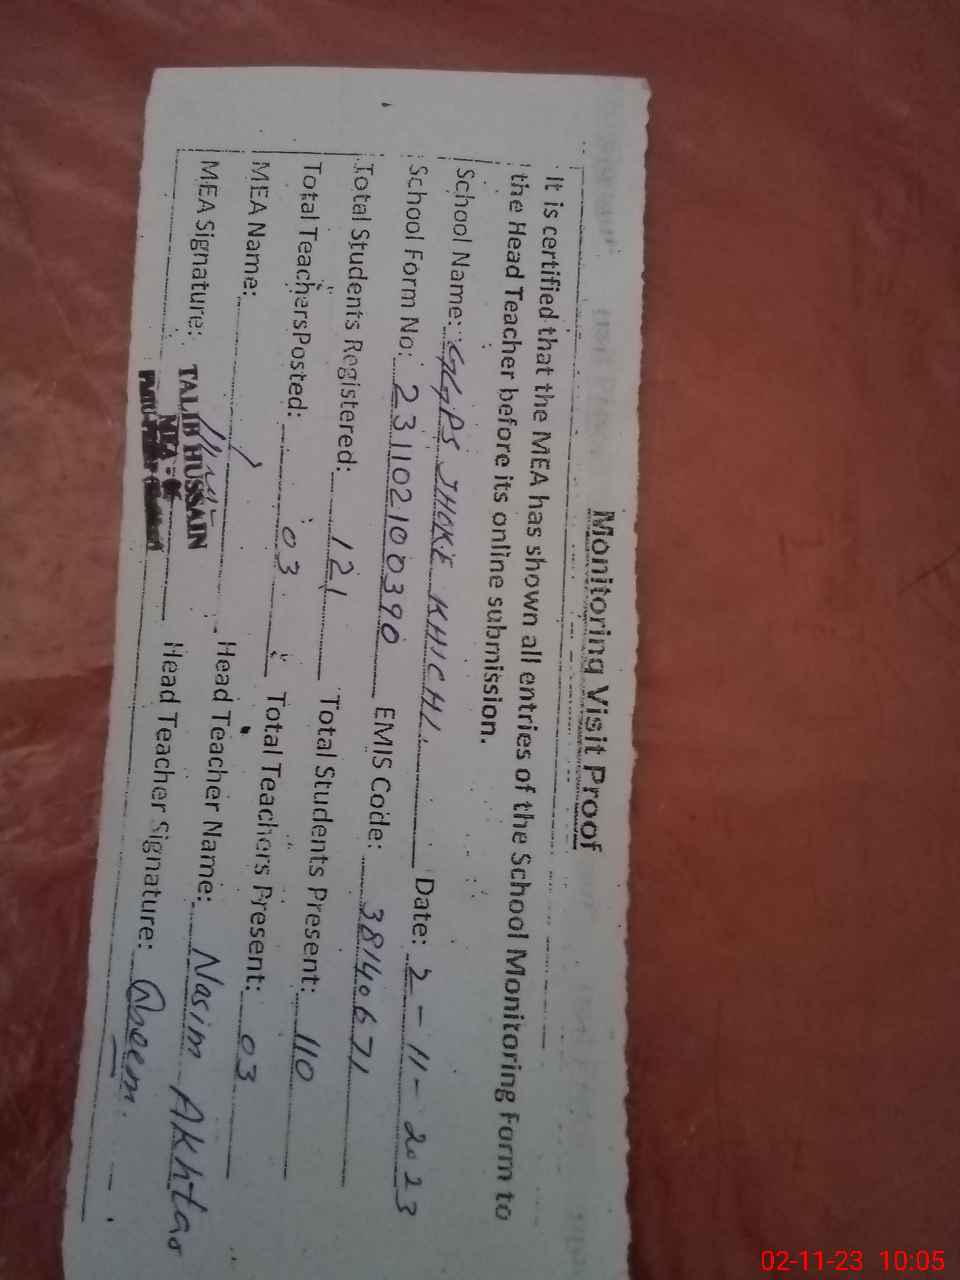 Monitoring Visit Proof
It is certified that the MEA has shown all entries of the School Monitoring Form to
the Head Teacher before its online submission.
School Name: GGPS JHOKE KHICHI. Date: 2-11-2023
School Form No: 231102100390 EMIS Code: 38140671
Total Students Registered: 121 Total Students Present: 110
Total Teachers Posted: 03 Total Teachers Present: 03
MEA Name: Head Teacher Name: Nasim Akhtar
MEA Signature: TALIB HUSSAIN Head Teacher Signature:
MEA -
02-11-23 10:05